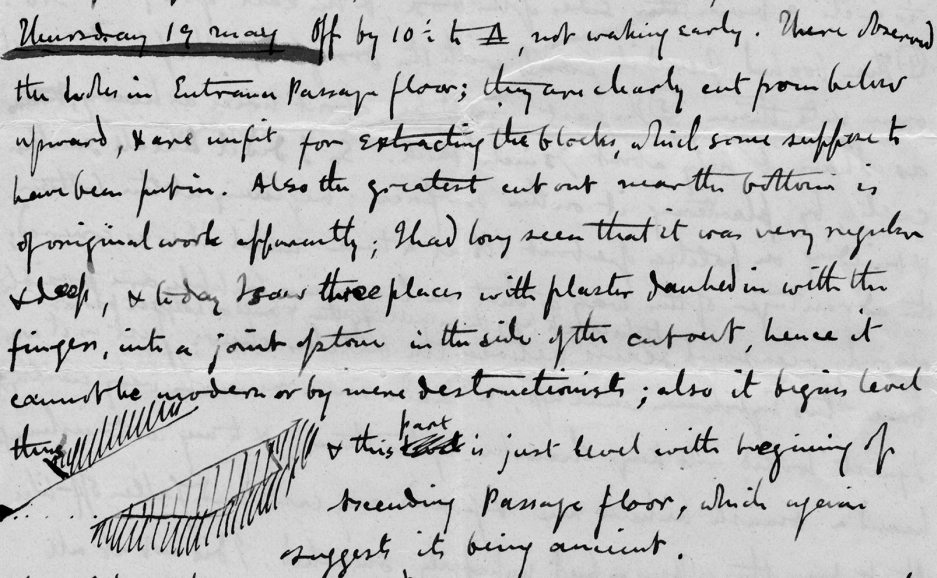 Thursday 19 may Off by 10½ to △, not waking early. There observed
the holes in Entrance Passage floor; they are clearly cut from below
upward, & are unfit for extracting the blocks, which some suppose to
have been put in. Also the greatest cut out near the bottom is
of original work apparently; I had long seen that it was very regular
& deep, & today I saw three places with plaster daubed in with the
fingers, into a joint of stone in the side of the cut out, hence it
cannot be modern or by mere destructionists; also it begins level
thus & this part is just level with begining of
Ascending Passage floor, which again
suggests its being ancient.